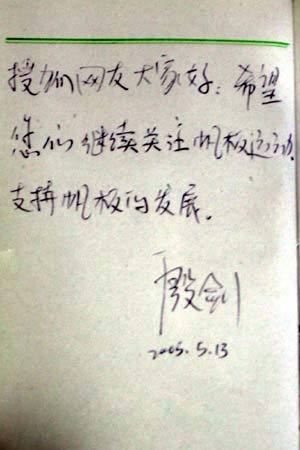 搜狐网友大家好：希望
您们继续关注帆板运动，
支持帆板的发展．
殷剑
2005.5.13